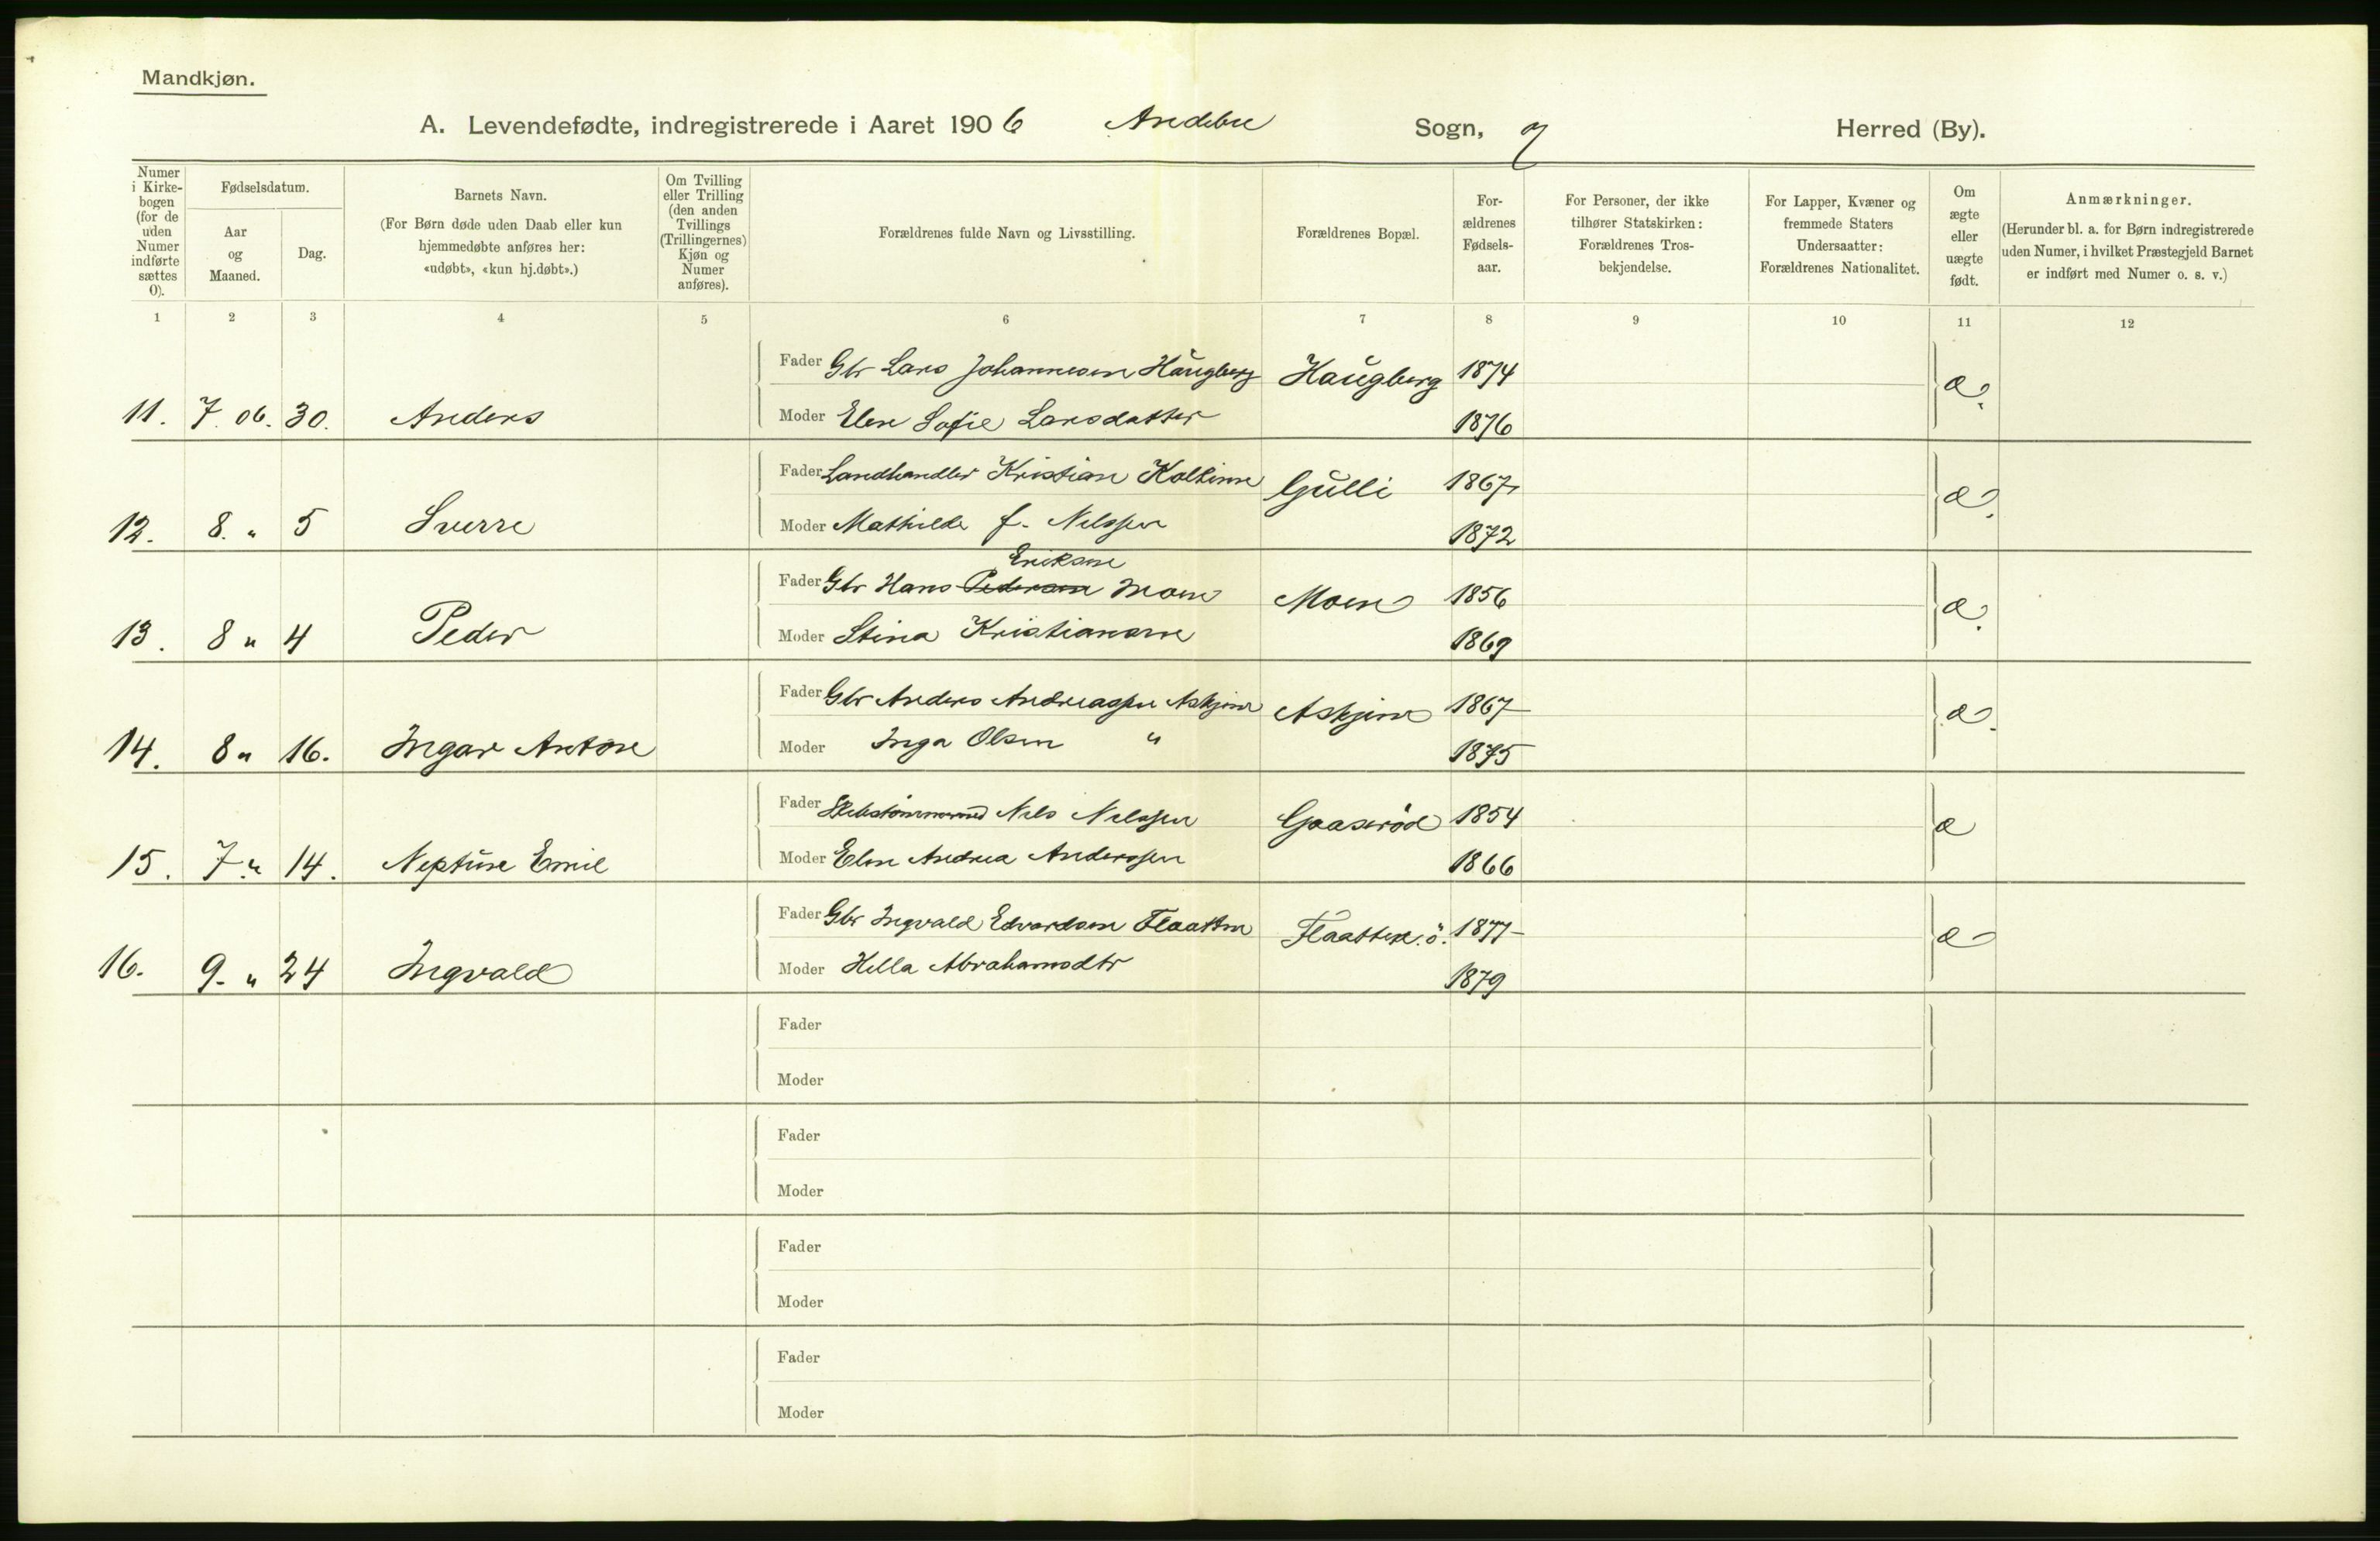 Mandkjøn.
A. Levendefødte, indregistrerede i Aaret 1906 Andebu Sogn, Herred (By).
Numer i Kirkebogen (for de uden Numer indførte sættes 0).
Fødselsdatum.
Aar og Maaned.
Dag.
Barnets Navn.
(For Børn døde uden Daab eller kun hjemmedøbte anføres her: «udøbt», «kun hj.døbt».)
Om Tvilling eller Trilling (den anden Tvillings (Trillingernes) Kjøn og Numer anføres).
Forældrenes fulde Navn og Livsstilling.
Forældrenes Bopæl.
For-ældrenes Fødsels-aar.
For Personer, der ikke tilhører Statskirken: Forældrenes Tros-bekjendelse.
For Lapper, Kvæner og fremmede Staters Undersaatter: Forældrenes Nationalitet.
Om ægte eller uægte født.
Anmærkninger.
(Herunder bl. a. for Børn indregistrerede uden Numer, i hvilket Præstegjeld Barnet er indført med Numer o. s. v.)
1 2 3 4 5 6 7 8 9 10 11 12
Fader Gbr Lars Johannesen Haugberg Haugberg 1874 æ.
11. 7. 06. 30. Anders Moder Elen Sofie Larsdatter 1876
Fader Landhandler Kristian Kolkinn Gulli 1867 æ.
12. 8. " 5 Sverre Moder Mathilde f. Nilssen 1872
Eriksen
Fader Gbr Hans Pedersen Moen Moen 1856 æ.
13. 8 " 4 Peder Moder Stina Kristiansen 1869
Fader Gbr Anders Andreassen Askjem Askjem 1867 æ.
14. 8 " 16. Ingar Anton Moder Inga Olsen " 1875
Fader Skibstømmermand Nils Nilssen Gaaserød 1854 æ
15. 7 " 14. Neptun Emil Moder Elen Andrea Anderssen 1866
Fader Gbr Ingvald Edvardsen Flaatten Flaatten. ö. 1877 æ
16. 9. " 24 Ingvald Moder Hella Abrahamsdtr 1879
Fader
Moder
Fader
Moder
Fader
Moder
Fader
Moder